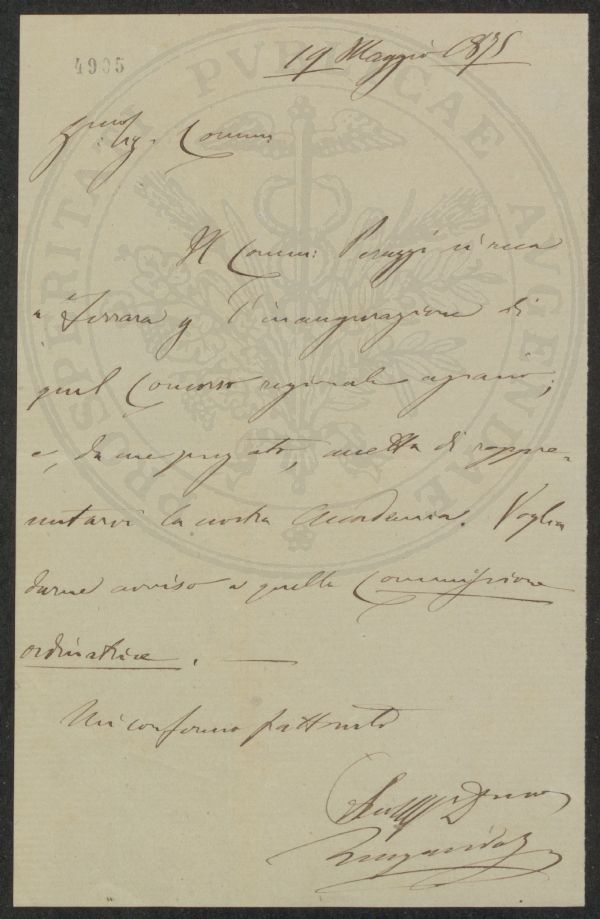 4905
19 Maggio 1875
Sig. Comm.
Il Comm: Peruzzi si reca
a Ferrara p l'inaugurazione di
quel Concorso regionale agrario;
e, da me pregato, accetta di rappre-
sentarvi la nostra Accademia. Voglia
darne avviso a quella Commissione
ordinatrice. —
Mi confermo frattanto
PROSPERITATI PVBLICAE AVGENDAE